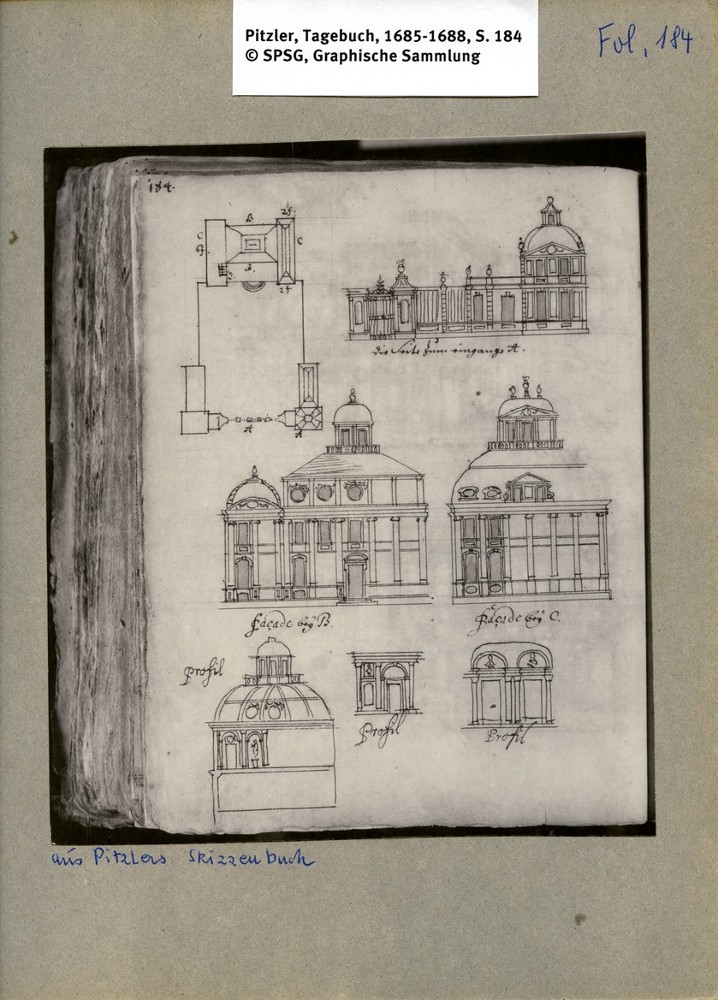 Pitzler, Tagebuch, 1685-1688, S. 184
© SPSG, Graphische Sammlung
Fol. 184
184.
B
25.
C
C
67.
B.
25
A
A
die Seite zum eingange A.
façade beÿ B.
façade beÿ C.
profil
Profil
Profil
aus Pitzlers Skizzenbuch